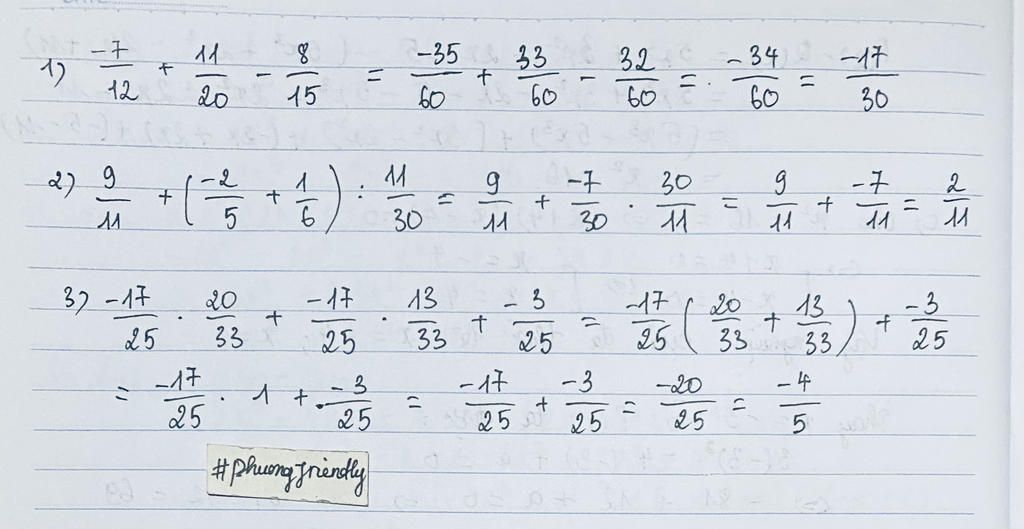 1) -7/12 + 11/20 - 8/15 = -35/60 + 33/60 - 32/60 = -34/60 = -17/30
2) 9/11 + (-2/5 + 1/6) : 11/30 = 9/11 + -7/30 . 30/11 = 9/11 + -7/11 = 2/11
3) -17/25 . 20/33 + -17/25 . 13/33 + -3/25 = -17/25 (20/33 + 13/33) + -3/25
= -17/25 . 1 + -3/25 = -17/25 + -3/25 = -20/25 = -4/5
#phuongfriendly